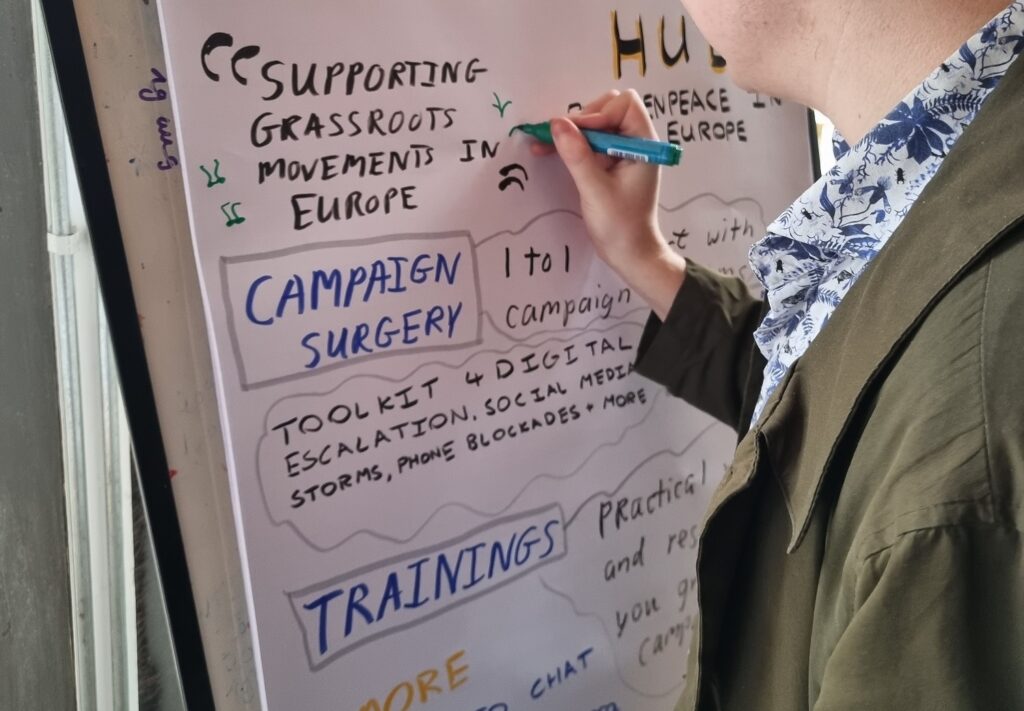 “SUPPORTING
GRASSROOTS
MOVEMENTS IN
EUROPE”
HU
IN
EUROPE
CAMPAIGN
SURGERY
1 to 1
with
campaign
TOOLKIT 4 DIGITAL
ESCALATION. SOCIAL MEDIA
STORMS, PHONE BLOCKADES + MORE
TRAININGS
PRactical
and
you
MORE
CHAT